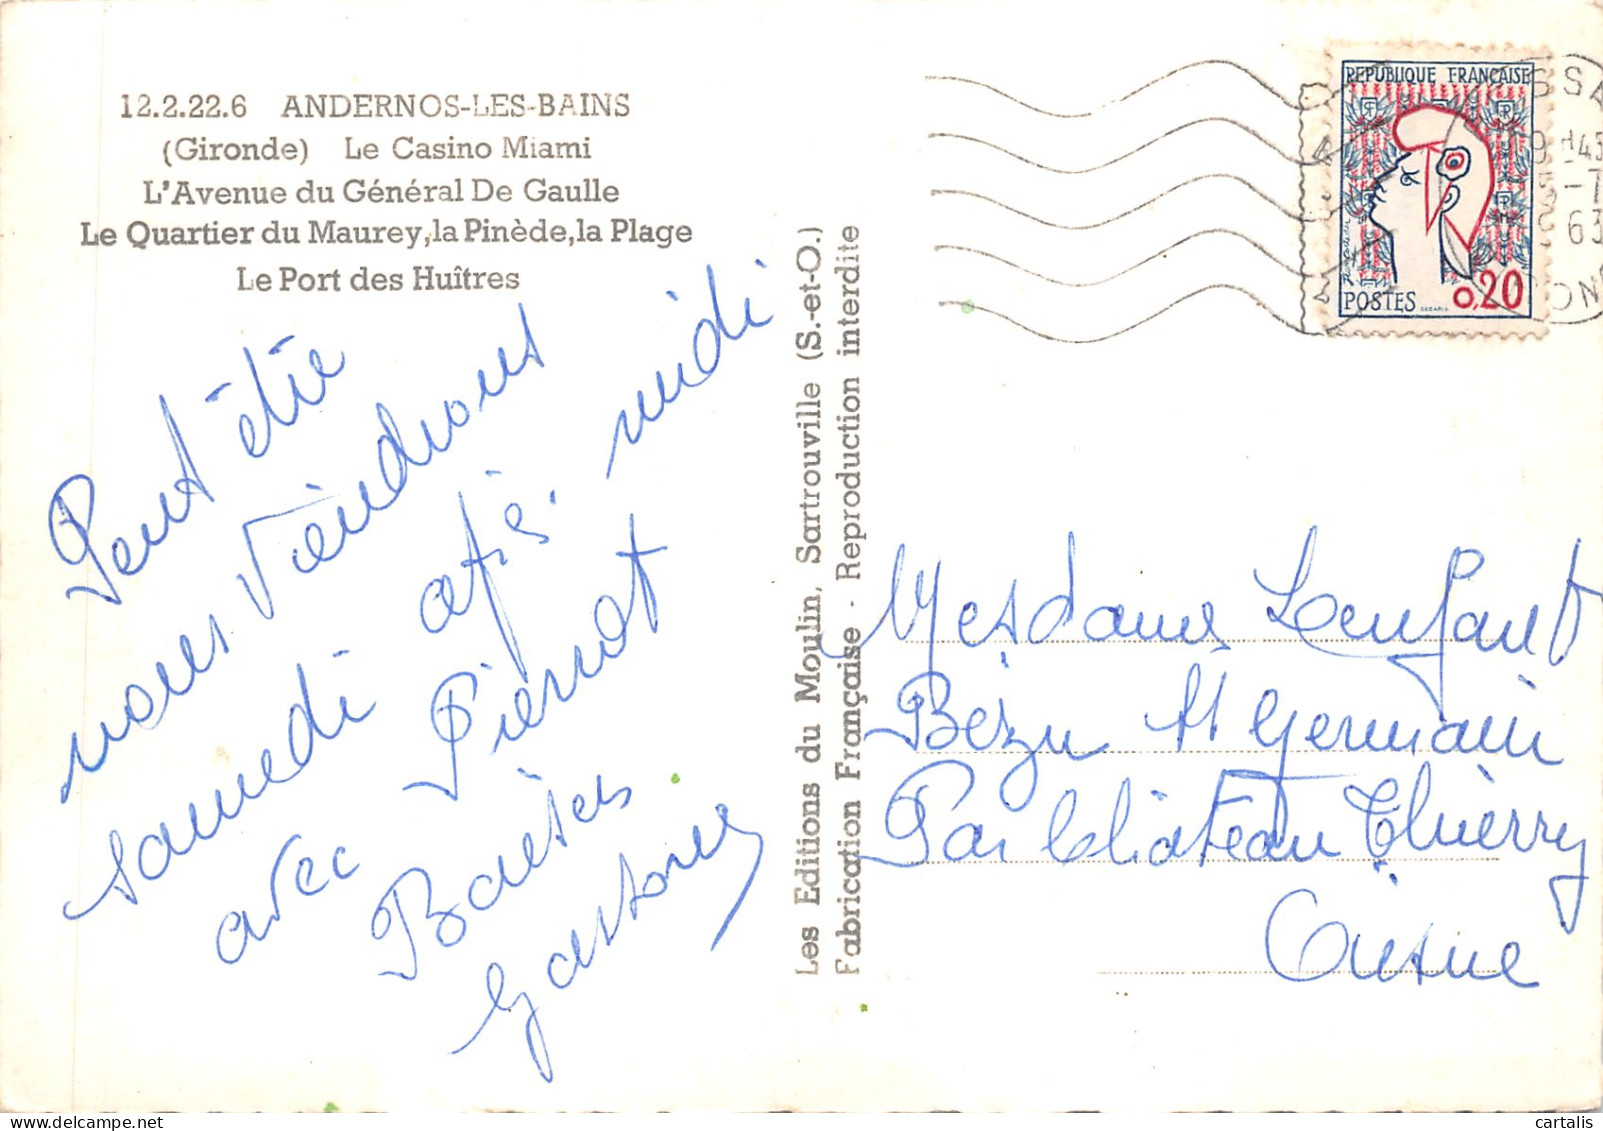 12.2.22.6 ANDERNOS-LES-BAINS
(Gironde) Le Casino Miami
L'Avenue du Général De Gaulle
Le Quartier du Maurey, la Pinède, la Plage
Le Port des Huîtres
Peut être
nous viendrons
samedi après midi
avec Pierrot
Baisers
Gaston
Les Editions du Moulin, Sartrouville (S.-et-O.)
Fabrication Française - Reproduction interdite
REPUBLIQUE FRANÇAISE
POSTES 0,20
63
Mesdames Lenfant
Bézu St Germain
Par Château Thierry
Aisne
cartalis